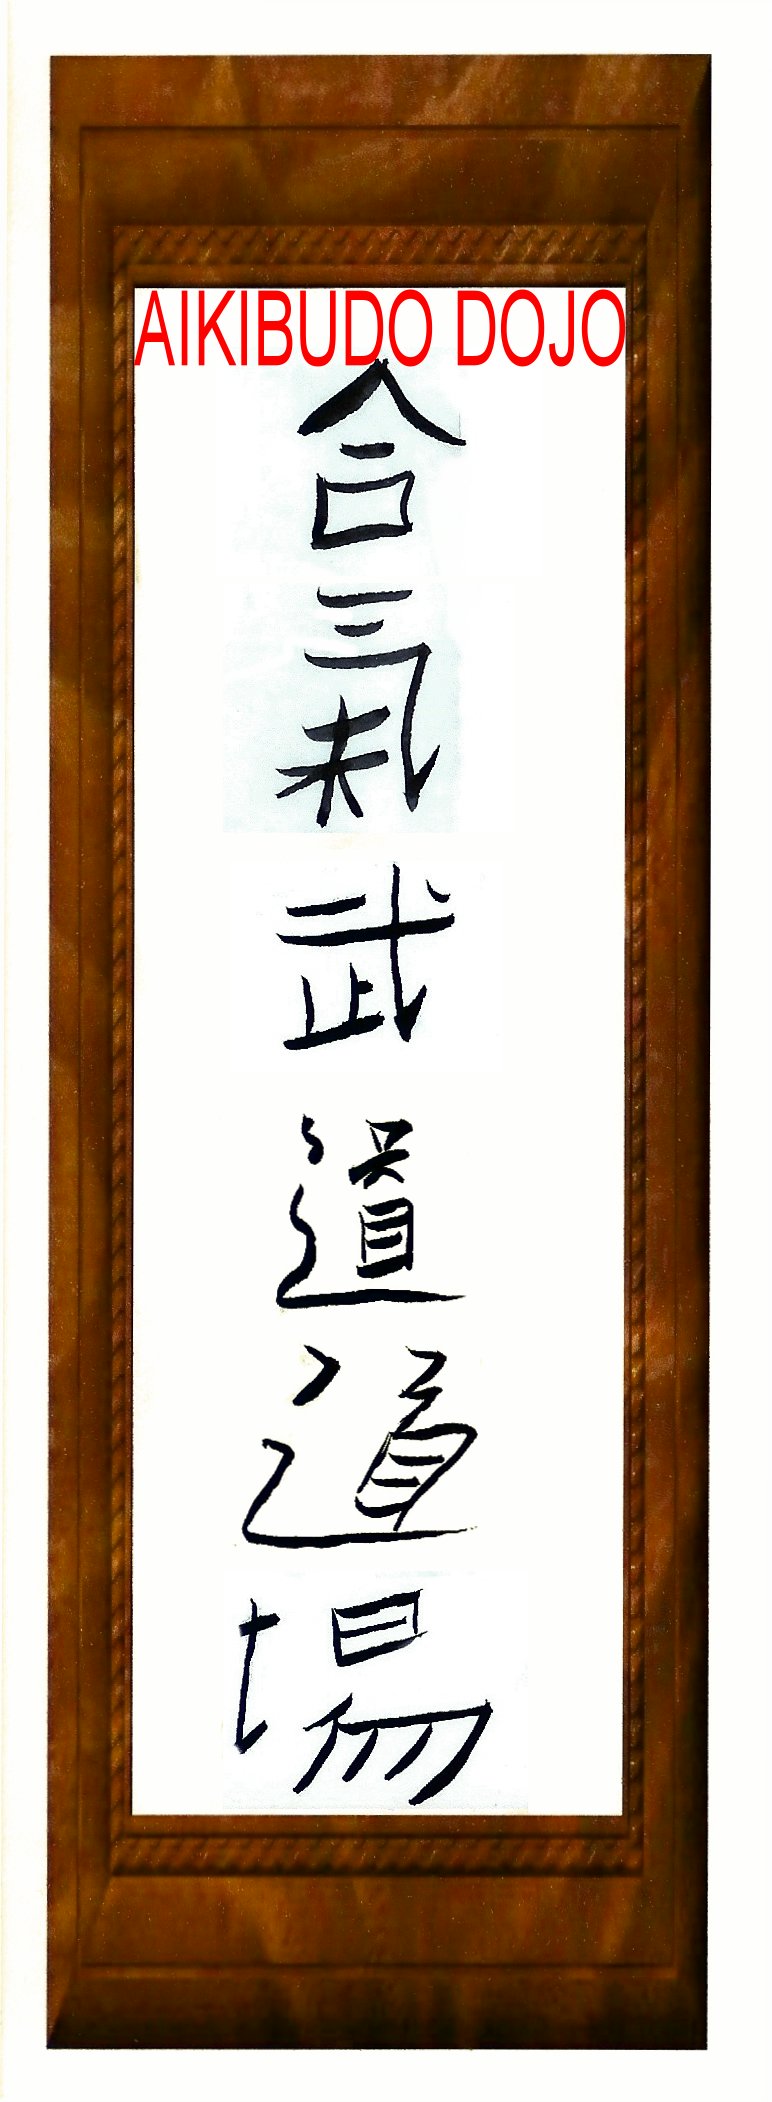 AIKIBUDO DOJO
合氣武道道場